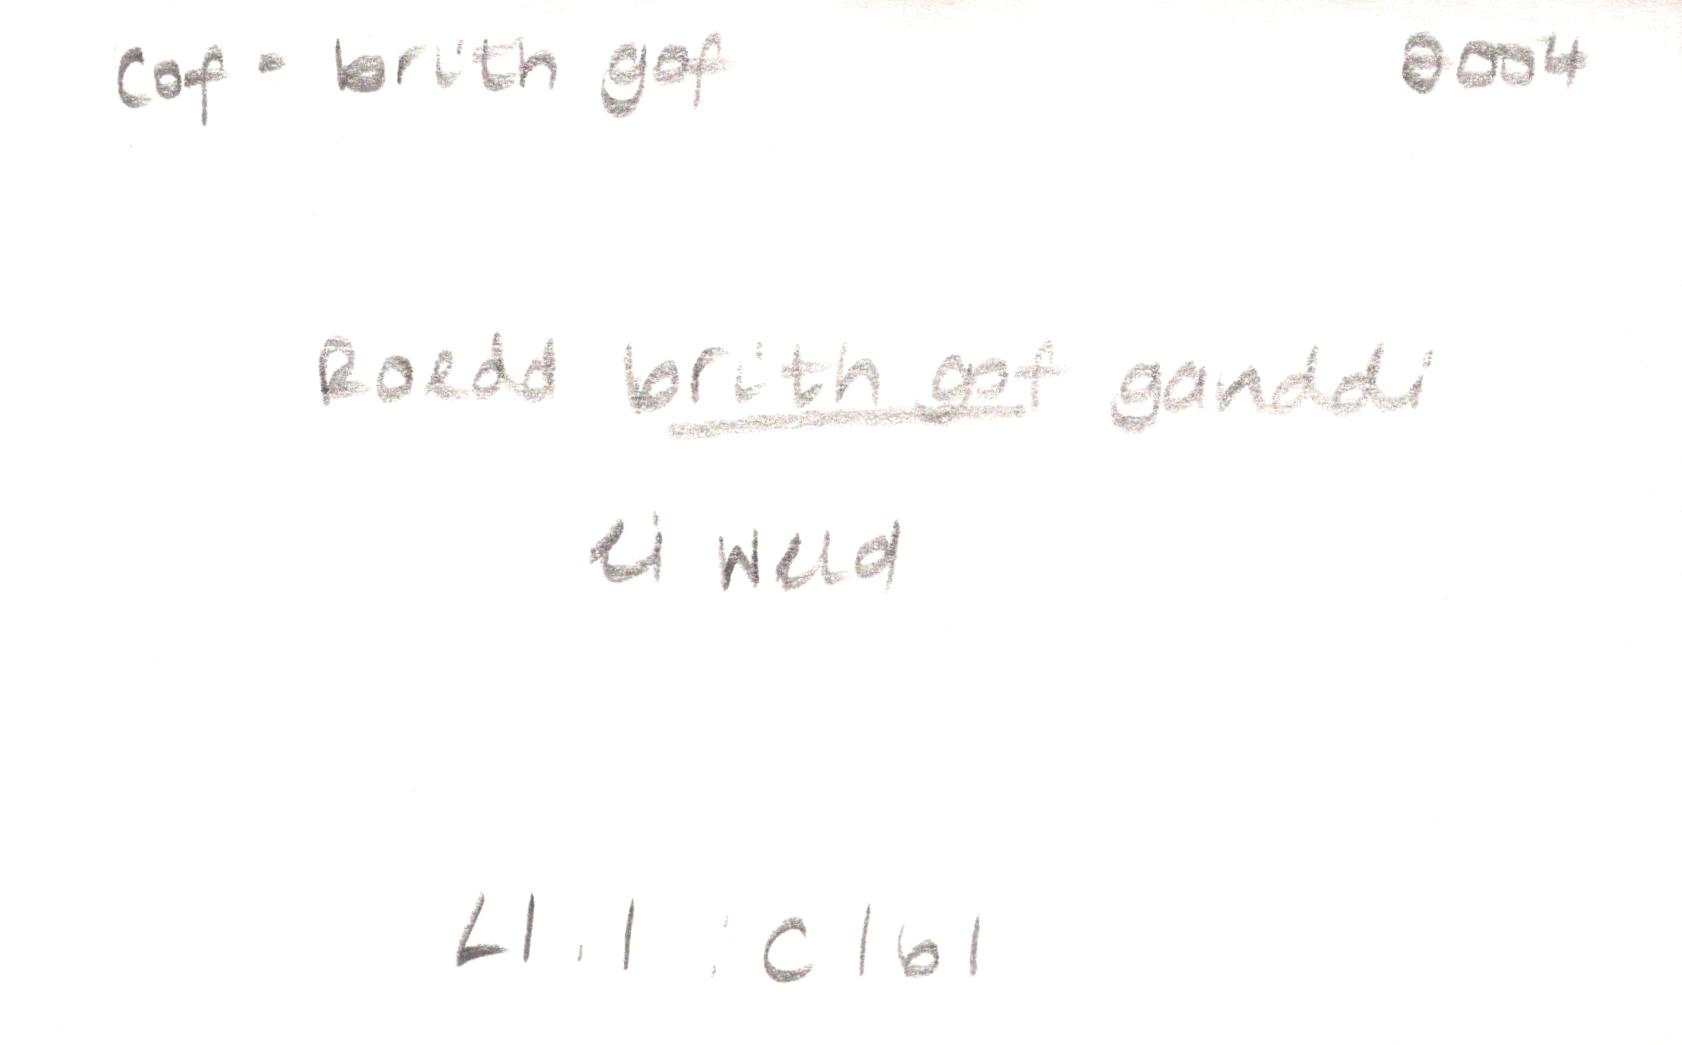 Cof - brith gof 2004
Roedd brith gof ganddi
ei weld
Ll.1 : C161